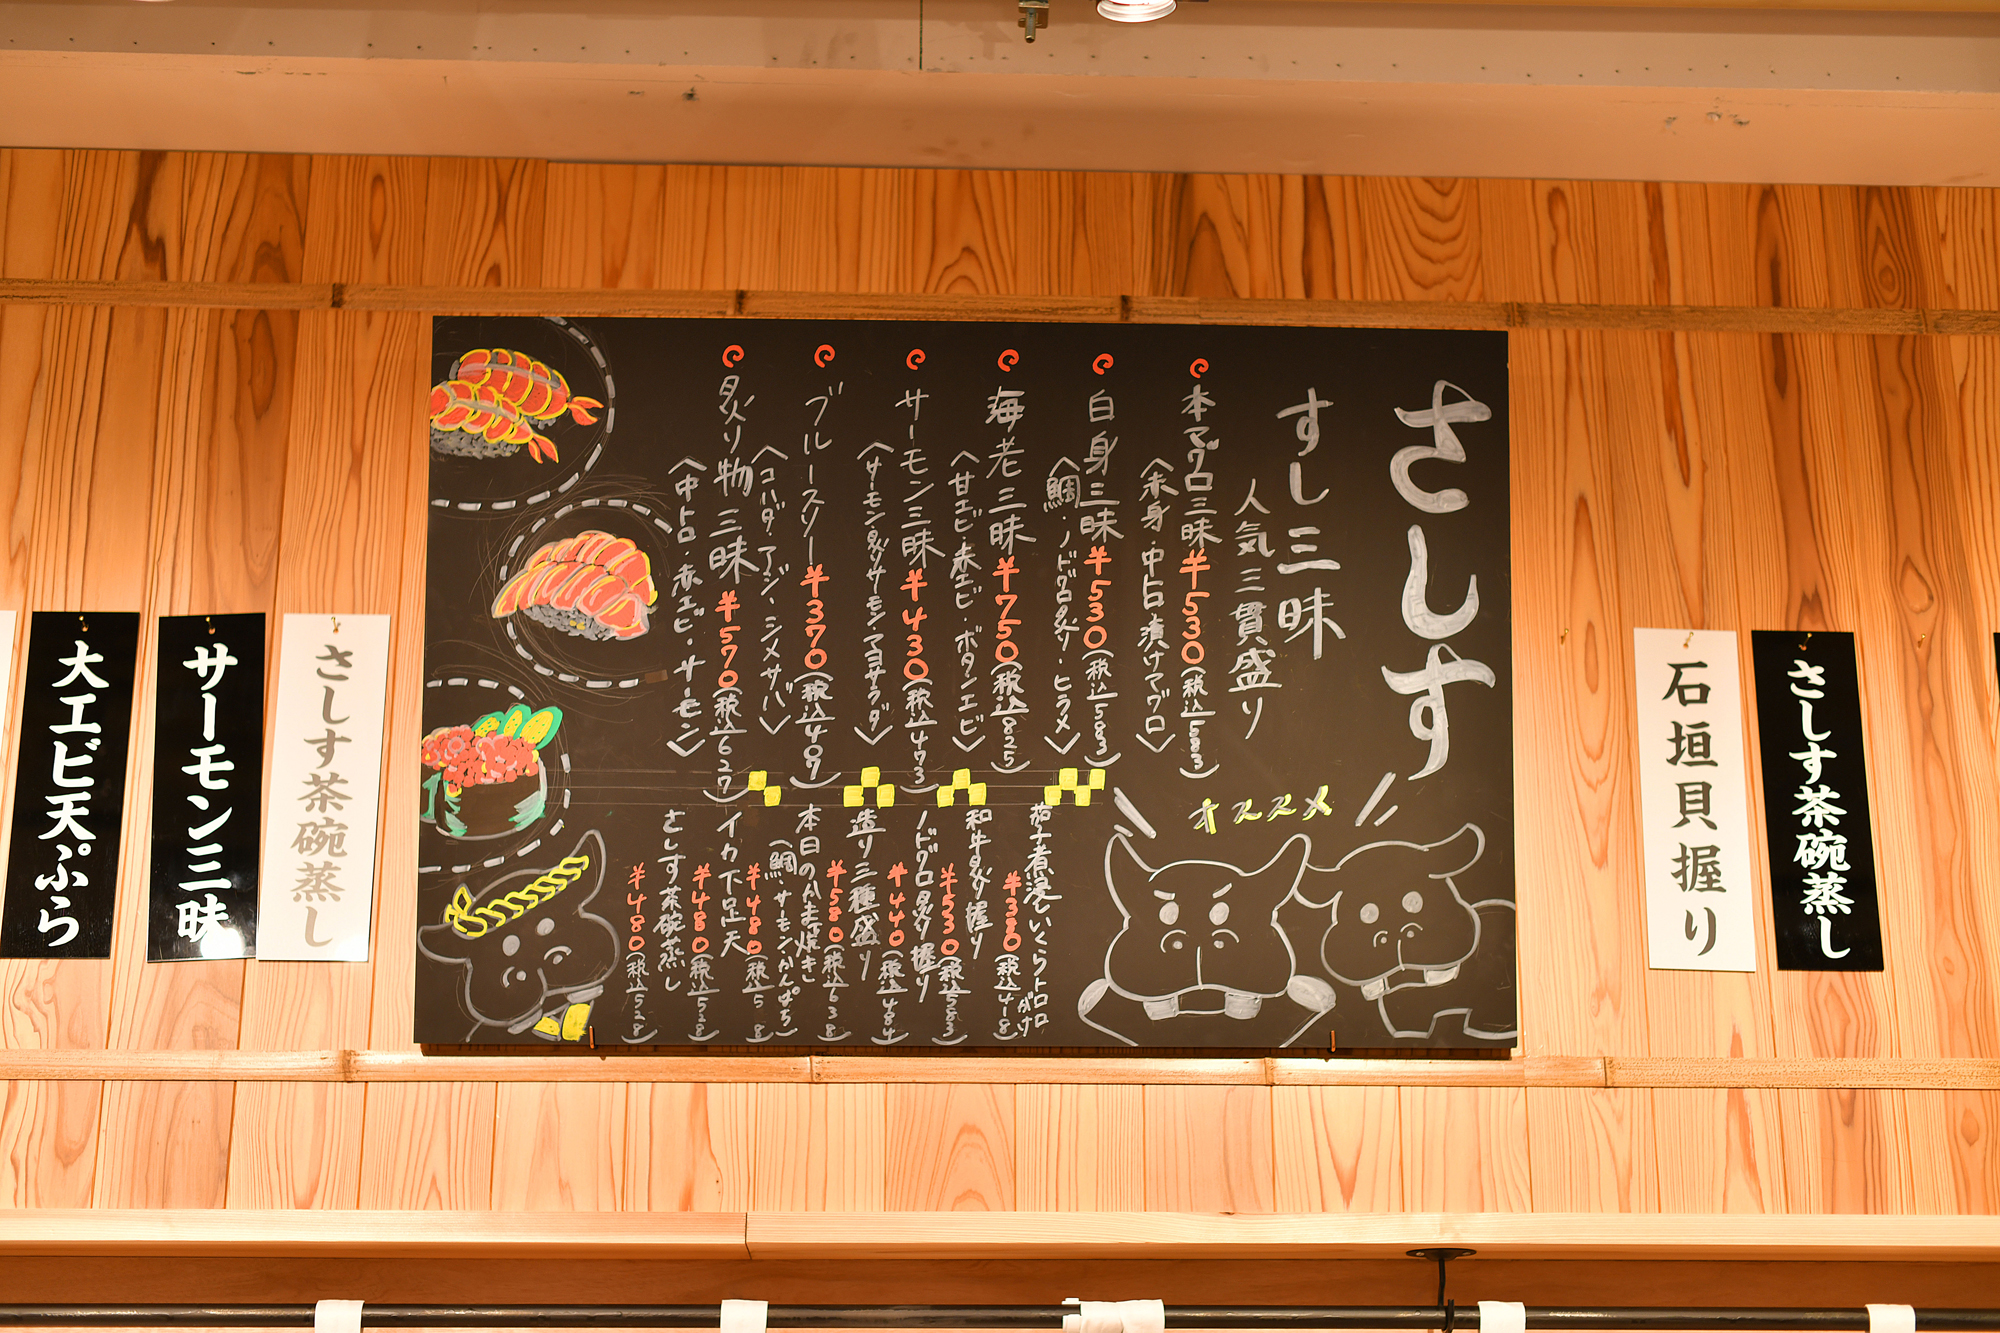 さしす
すし三昧
人気三貫盛り
本マグロ三昧 ¥530(税込583)
〈赤身・中トロ・漬けマグロ〉
白身三昧 ¥530(税込583)
〈鯛・ノドグロ炙り・ヒラメ〉
海老三昧 ¥750(税込825)
〈甘エビ・赤エビ・ボタンエビ〉
サーモン三昧 ¥430(税込473)
〈サーモン・炙りサーモン・マヨサラダ〉
ブルースリー ¥370(税込409)
〈コハダ・アジ・シメサバ〉
炙り物三昧 ¥570(税込627)
〈中トロ・赤エビ・サーモン〉
オススメ
茄子煮浸しいくらトロロがけ
¥380(税込418)
和牛炙り握り
¥530(税込583)
ノドグロ炙り握り
¥440(税込484)
造り三種盛り
¥580(税込638)
本日のかま焼き
(鯛・サーモン・かんぱち)
¥480(税込528)
イカ下足天
¥480(税込528)
さしす茶碗蒸し
¥480(税込528)
さしす茶碗蒸し
石垣貝握り
さしす茶碗蒸し
サーモン三昧
大エビ天ぷら